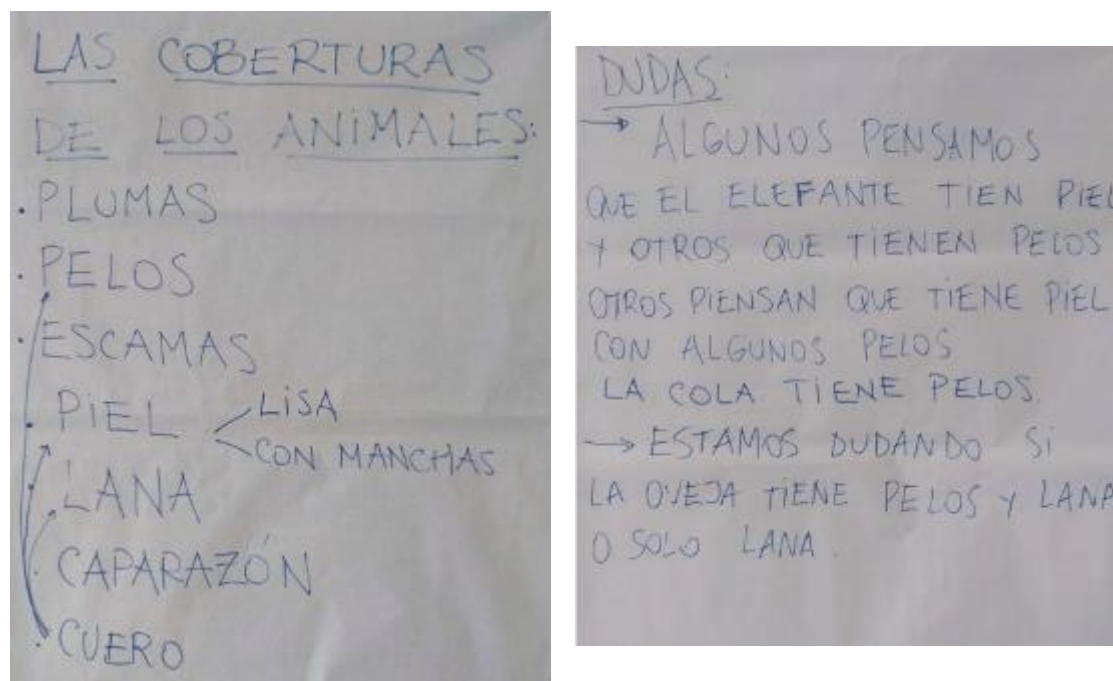 LAS COBERTURAS
DE LOS ANIMALES:
. PLUMAS
. PELOS
. ESCAMAS
. PIEL < LISA
CON MANCHAS
. LANA
. CAPARAZÓN
. CUERO
DUDAS:
→ ALGUNOS PENSAMOS
QUE EL ELEFANTE TIEN PIEL
Y OTROS QUE TIENEN PELOS
OTROS PIENSAN QUE TIENE PIEL
CON ALGUNOS PELOS
LA COLA TIENE PELOS.
→ ESTAMOS DUDANDO SI
LA OVEJA TIENE PELOS Y LANA
O SOLO LANA.